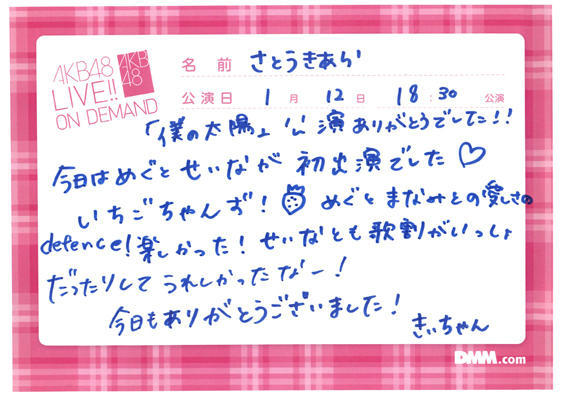 AKB48
LIVE!!
ON DEMAND
AKB
48
名前 さとうきあら
公演日 1月 12日 18:30 公演
「僕の太陽」公演ありがとうでした!!
今日はめぐとせいなが初出演でした♡
いちごちゃんず! めぐとまなみとの愛しさの
defence!楽しかった!せいなとも歌割がいっしょ
だったりしてうれしかったなー!
今日もありがとうございました!
きぃちゃん
DMM.com